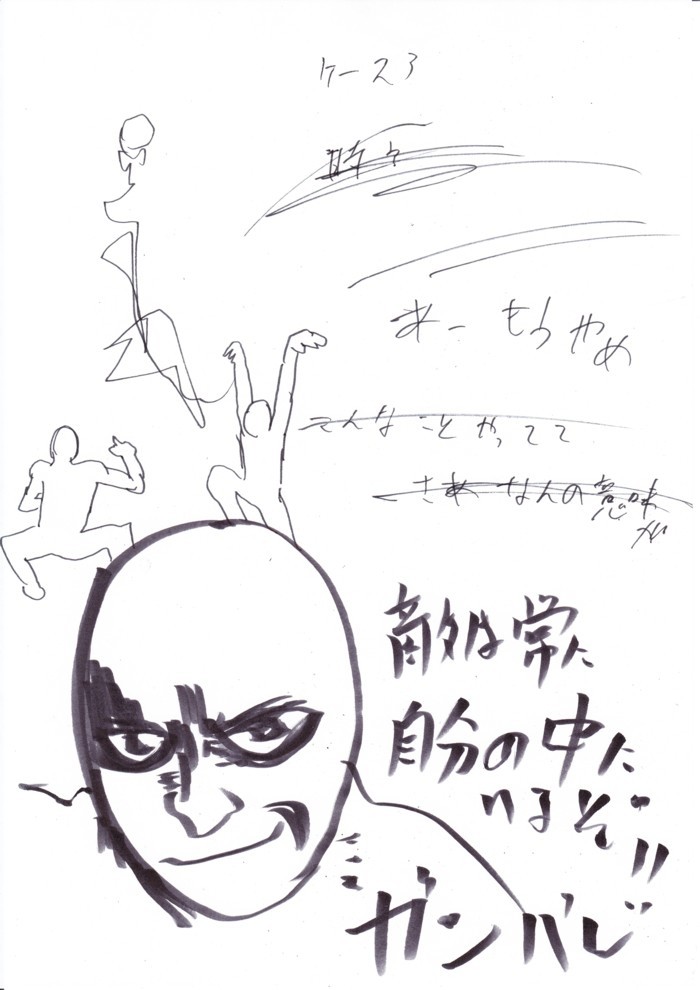 ケース3
時々
あー もうやめ
こんなことやってて
さあ なんの意味
が
敵は常に
自分の中に
いるぞ!!
ガンバレ